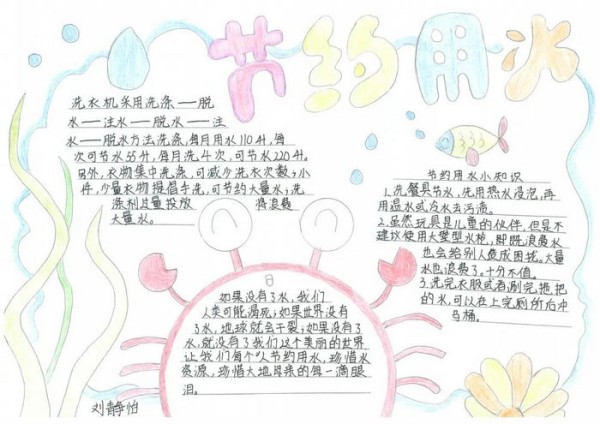 节约用水
洗衣机采用洗涤——脱
水——注水——脱水——注
水——脱水方法洗涤,每月用水110升,每
次可节水55升,每月洗4次,可节水220升。
另外,衣物集中洗涤,可减少洗衣次数;小
件,少量衣物提倡手洗,可节约大量水;洗
涤剂过量投放 将浪费
大量水。
节约用水小知识
1.洗餐具节水,先用热水浸泡,再
用温水或冷水去污渍。
2.虽然玩具是儿童的伙伴,但是不
建议使用大型水枪,即既浪费水
也会给别人造成困扰。大量
水也浪费了,十分不值。
3.洗完衣服或者涮完拖把
的水,可以在上完厕所后冲
马桶。
如果没有了水,我们
人类可能渴死;如果世界没有
了水,地球就会干裂;如果没有了
水,就没有了我们这个美丽的世界
让我们每个人节约用水,珍惜水
资源,珍惜大地母亲的每一滴眼
泪。
刘静怡